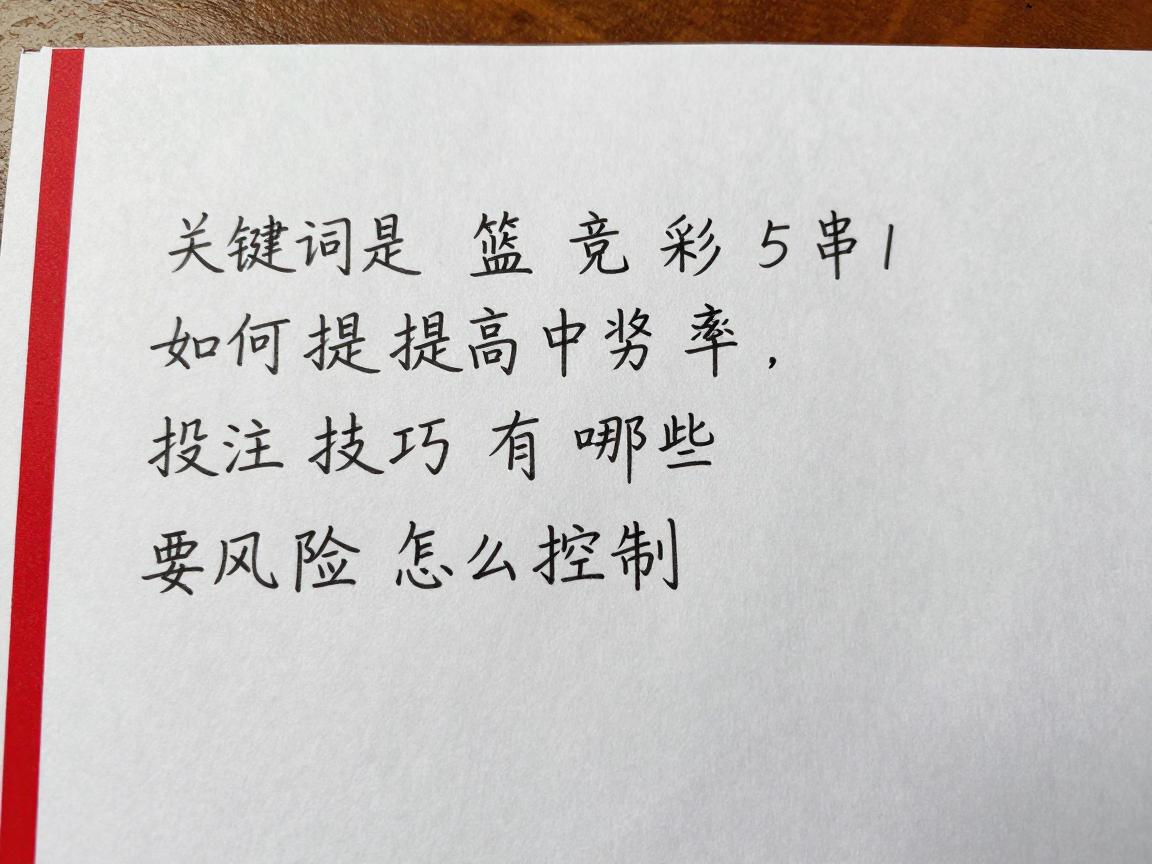 关键词是 篮 竞 彩 5串1
如何提提高中奖率，
投注技巧有哪些
要风险怎么控制